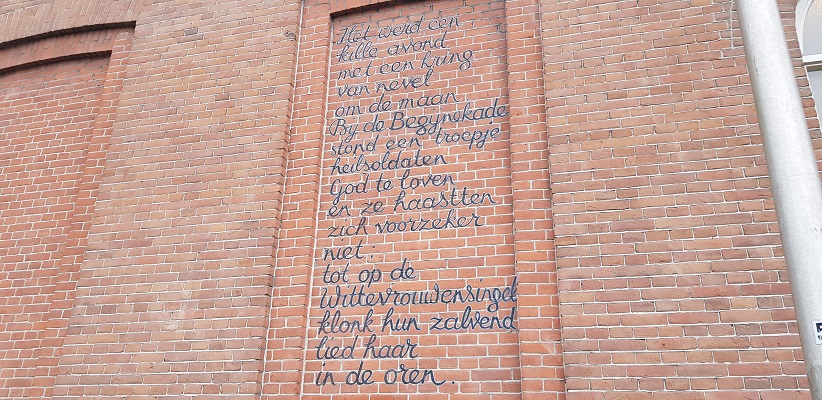 Het werd een
kille avond
met een kring
van nevel
om de maan
By de Begynekade
stond een troepje
heilsoldaten
God te loven
en ze haastten
zich voorzeker
niet:
tot op de
Wittevrouwensingel
klonk hun zalvend
lied haar
in de oren.